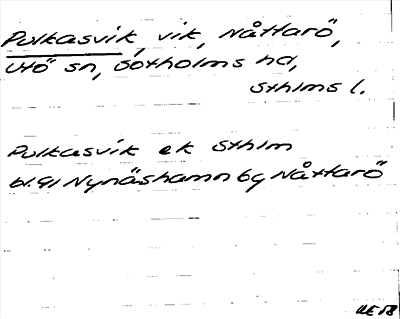 Pulkasvik, vik, Nåttarö,
Utö sn, Sotholms hd,
Sthlms l.
Pulkasvik ek Sthlm
bl.91 Nynäshamn 6g Nåttarö
UE 58